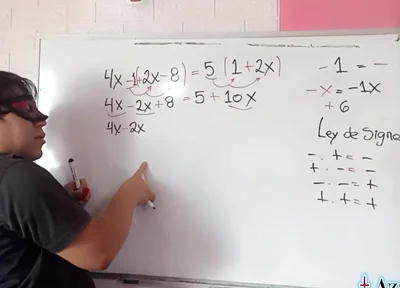 4x -1(+2x-8) = 5 (1+2x)
4x - 2x + 8 = 5 + 10x
4x - 2x
-1 = -
-x = -1x
+6
Ley de Signo
- . + = -
+ . - = -
- . - = +
+ . + = +